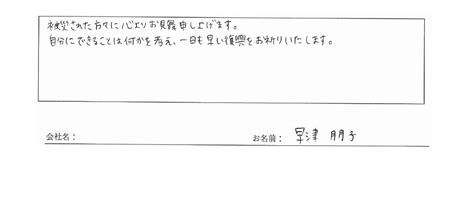 被災された方々に心よりお見舞申し上げます。
自分にできることは何かを考え、一日も早い復興をお祈りいたします。
会社名：
お名前： 早津 朋子